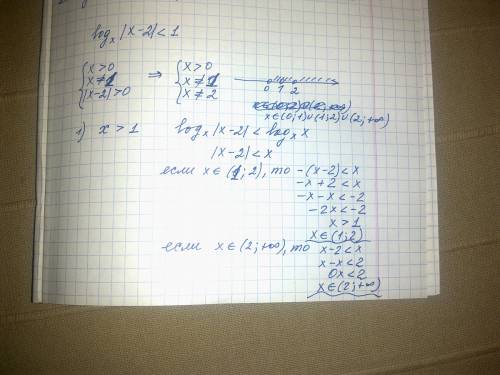 log_x |x-2| < 1
{ x>0   ⇒ { x>0
x≠1   x≠1
|x-2|>0   x≠2   0 1 2
x∈(0;1)∪(1;2)∪(2;+∞)
1) x>1   log_x |x-2| < log_x x
|x-2|<x
если x∈(1;2), то -(x-2)<x
-x+2<x
-x-x<-2
-2x<-2
x>1
x∈(1;2)
если x∈(2;+∞), то x-2<x
x-x<2
0x<2
x∈(2;+∞)